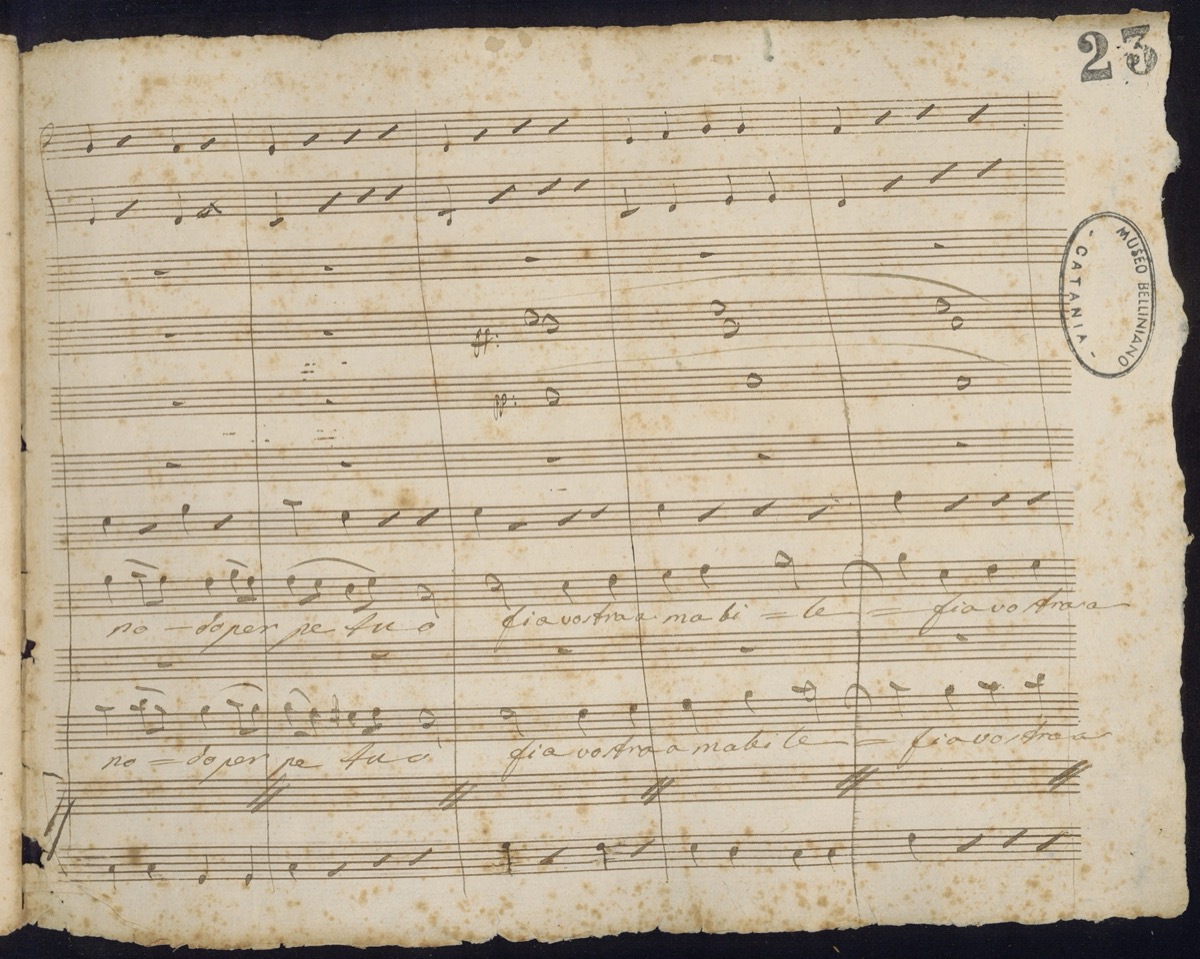 23
MUSEO BELLINIANO
- CATANIA -
ff:
pp:
no - do per pe tu o
fia vostra a ma bi = le = fia vostra a
no = do per pe tu o
fia vostra a ma bi le = fia vostra a